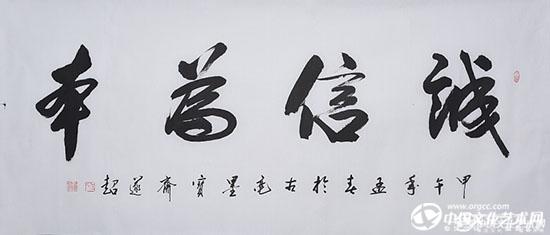 誠信為本
甲午年孟春於古亳墨寶齋超
www.orgcc.com
中国文化艺术网